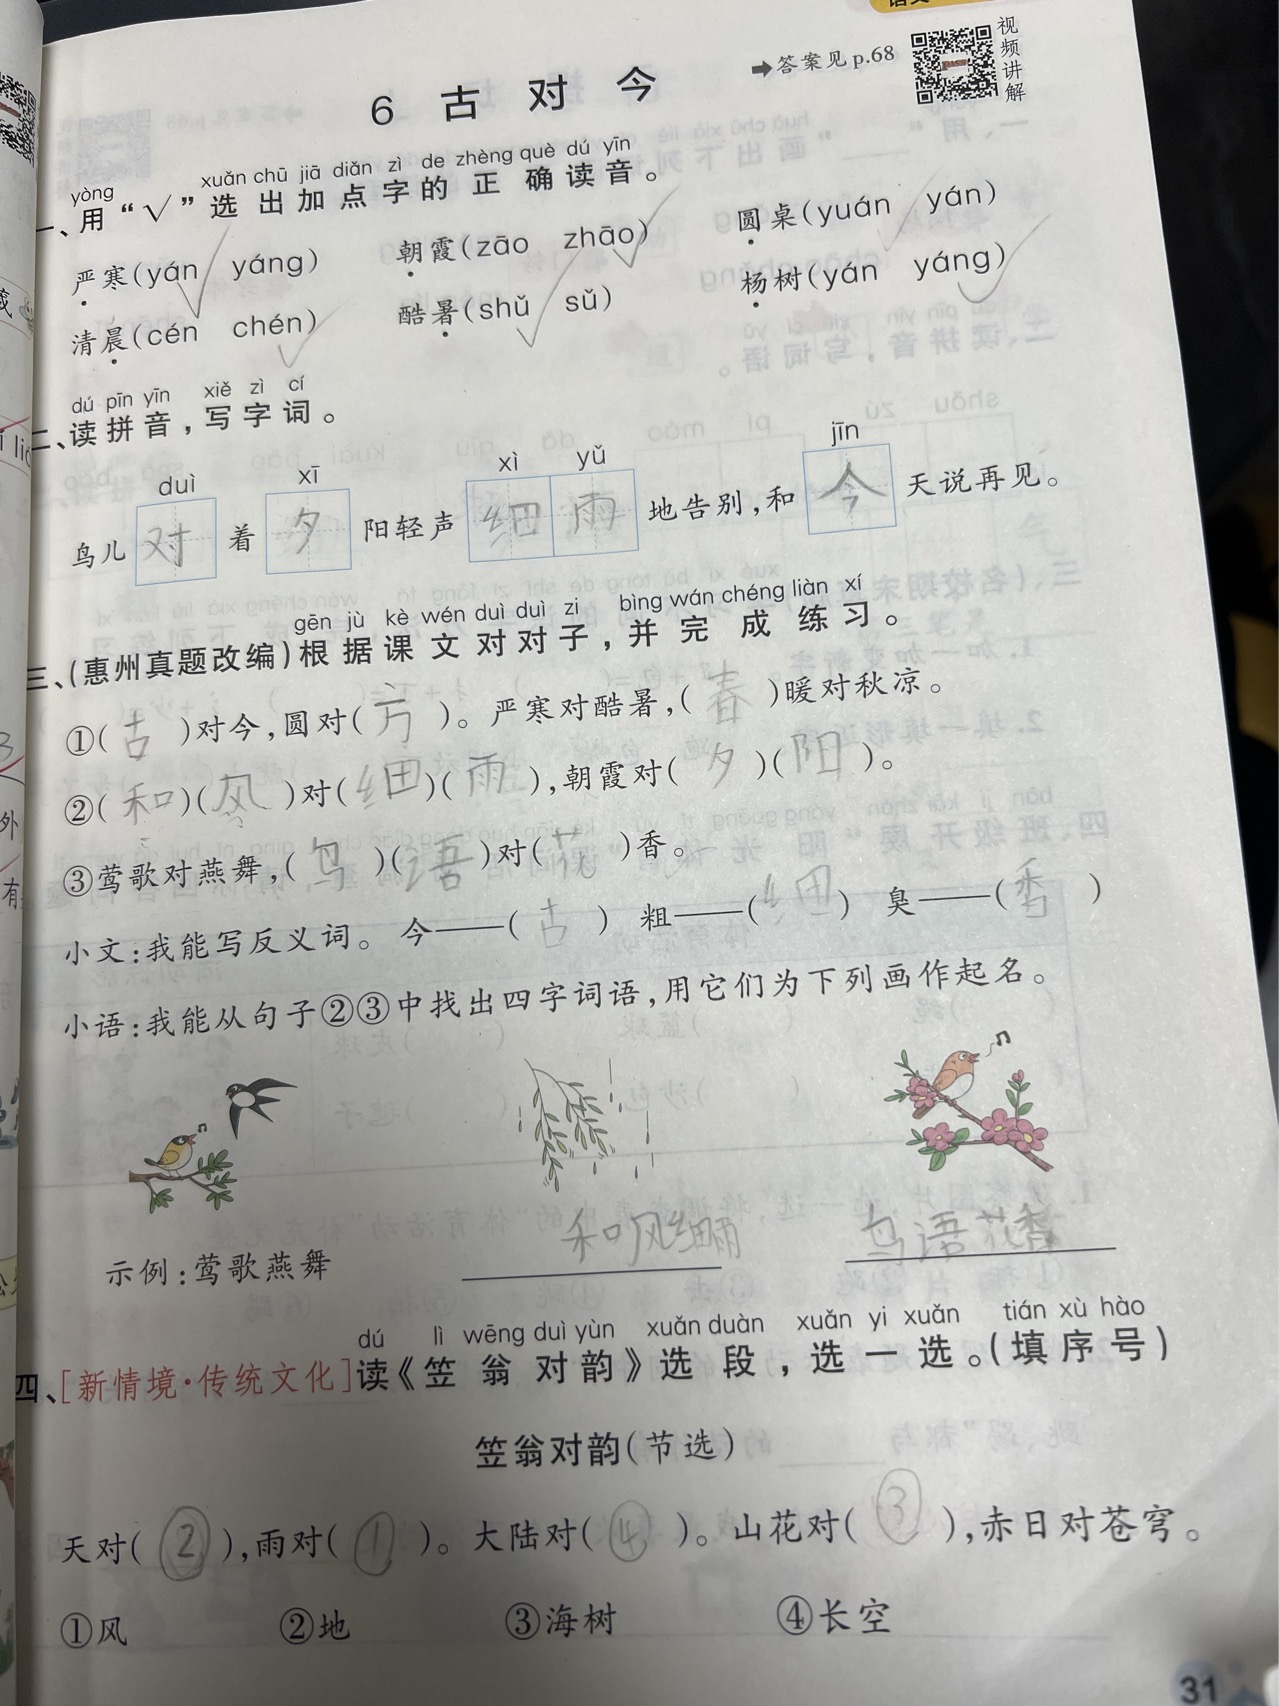 答案见p.68
视频讲解
6 古对今
yòng xuǎn chū jiā diǎn zì de zhèng què dú yīn
一、用“√”选出加点字的正确读音。
严寒(yán yáng) 朝霞(zāo zhāo) 圆桌(yuán yán)
清晨(cén chén) 酷暑(shǔ sǔ) 杨树(yán yáng)
dú pīn yīn xiě zì cí
二、读拼音，写字词。
duì xī xì yǔ jīn
鸟儿对着夕阳轻声细雨地告别，和今天说再见。
gēn jù kè wén duì duì zi bìng wán chéng liàn xí
三、(惠州真题改编)根据课文对对子，并完成练习。
①(古)对今，圆对(方)。严寒对酷暑，(春)暖对秋凉。
②(和)(风)对(细)(雨)，朝霞对(夕)(阳)。
③莺歌对燕舞，(鸟)(语)对(花)香。
小文：我能写反义词。 今——(古) 粗——(细) 臭——(香)
小语：我能从句子②③中找出四字词语，用它们为下列画作起名。
示例：莺歌燕舞 和风细雨 鸟语花香
dú lì wēng duì yùn xuǎn duàn xuǎn yi xuǎn tián xù hào
四、[新情境·传统文化]读《笠翁对韵》选段，选一选。(填序号)
笠翁对韵(节选)
天对(②)，雨对(①)。大陆对(④)。山花对(③)，赤日对苍穹。
①风 ②地 ③海树 ④长空
31